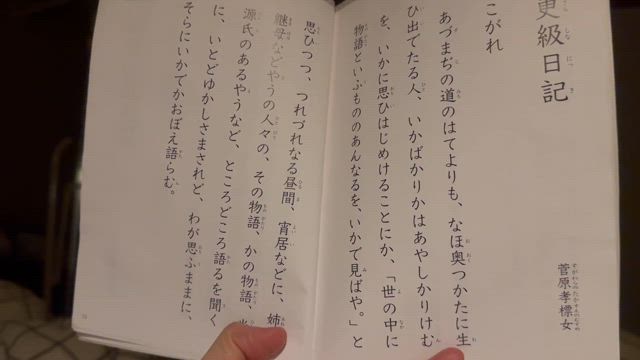 更級日記
菅原孝標女
こがれ
あづまぢの道のはてよりも、なほ奥つかたに生
ひ出でたる人、いかばかりかはあやしかりけむ
を、いかに思ひはじめけることにか、「世の中に
物語といふもののあんなるを、いかで見ばや。」と
思ひつつ、つれづれなる昼間、宵居などに、姉
継母などやうの人々の、その物語、かの物語、
源氏のあるやうなど、ところどころ語るを聞く
に、いとどゆかしさまされど、わが思ふままに、
そらにいかでかおぼえ語らむ。